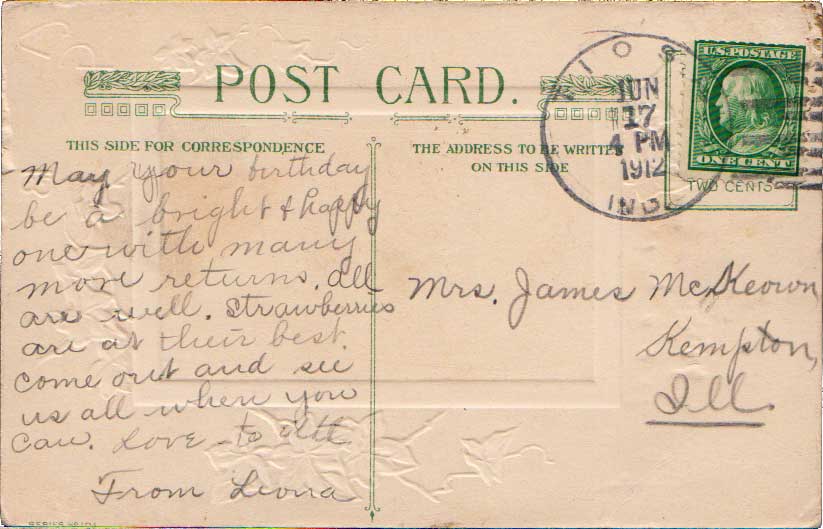 POST CARD.
THIS SIDE FOR CORRESPONDENCE
THE ADDRESS TO BE WRITTEN
ON THIS SIDE
U.S. POSTAGE
ONE CENT
TWO CENTS
JUN
17
4 PM
1912
IND.
May your birthday
be a bright & happy
one with many
more returns. All
are well. Strawberries
are at their best.
come out and see
us all when you
can. Love to all
From Leona
Mrs. James McKeown
Kempton,
Ill.